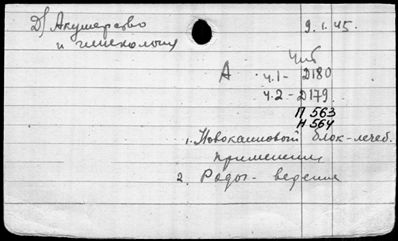 Д/ Акушерство 9.1.45.
и гинекология
Чит
А ч.1 - Д180
ч.2 - Д179
П 563
Н 564
1. Новокаиновый блок-лечеб.
применение
2. Роды - ведение